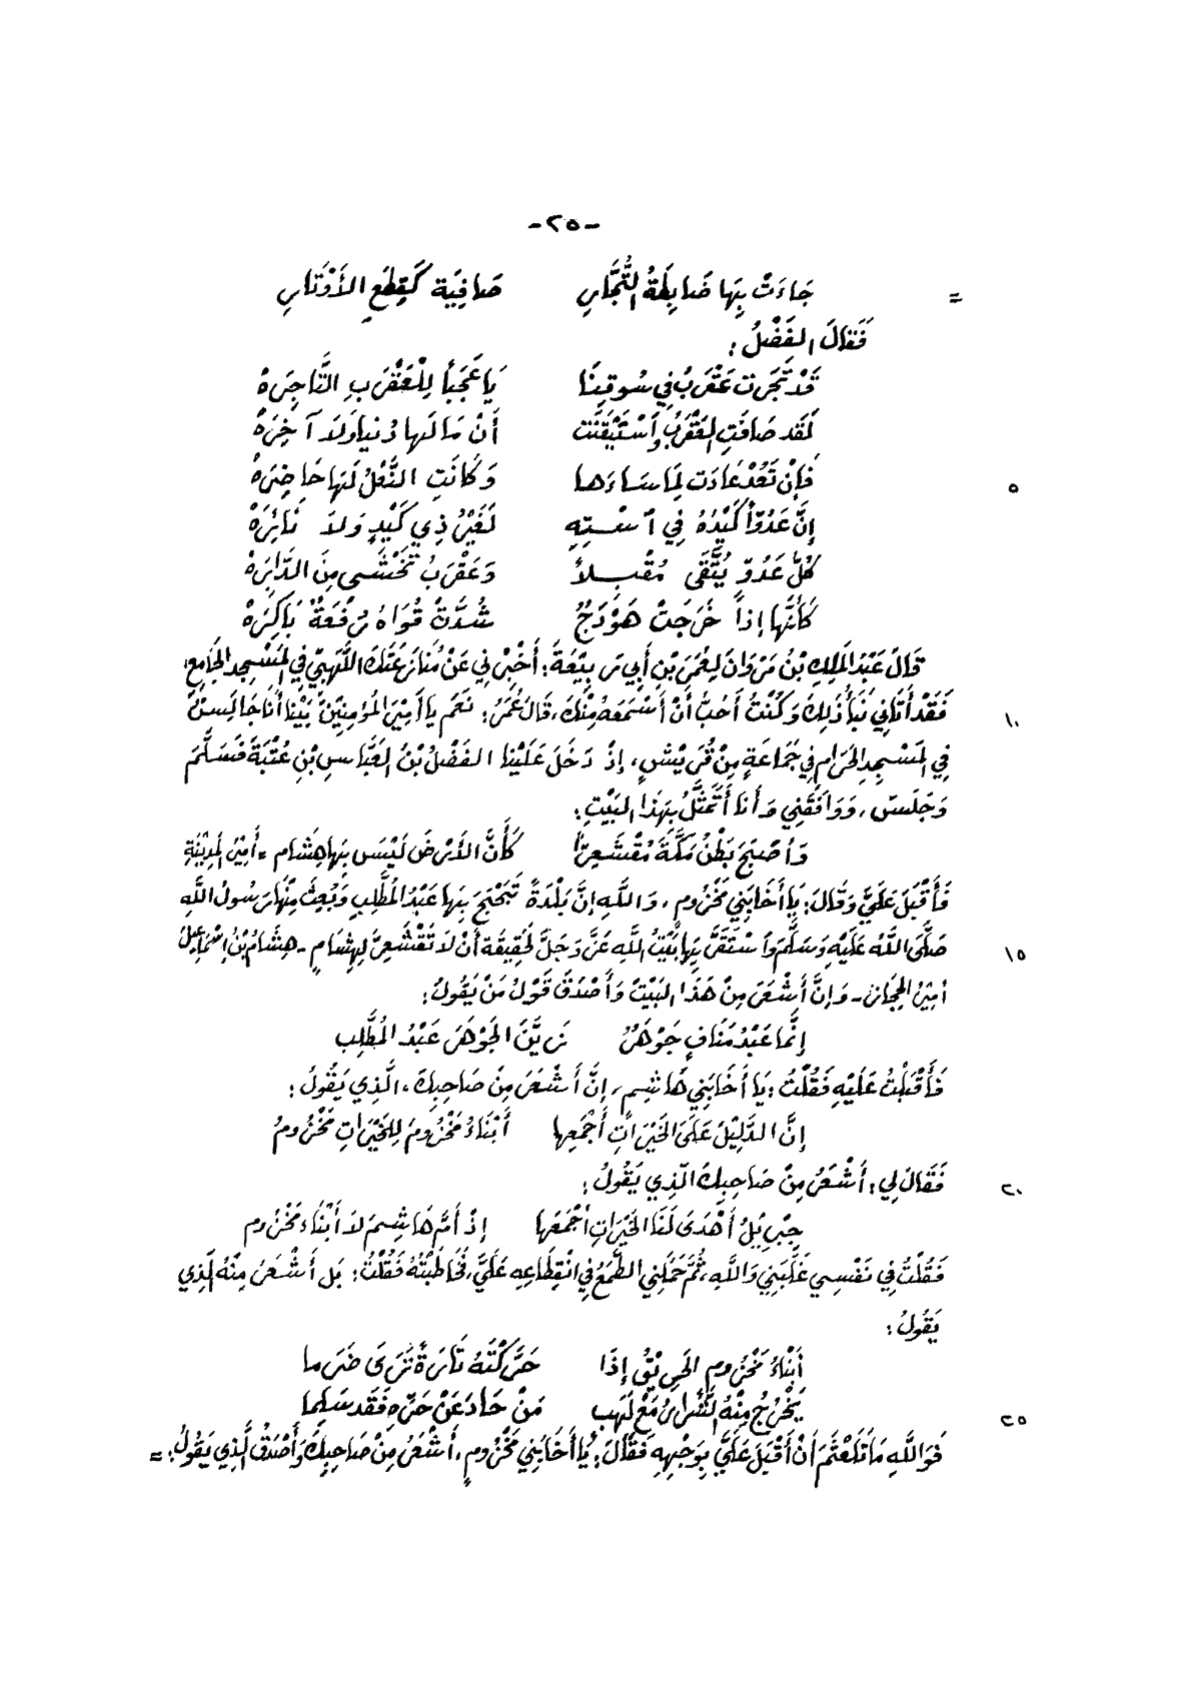 -٢٥-
= جَاءَتْ بِهَا ضَابِطَةُ التُّجَّارِ صَافِيَة كَقِطَعِ الأَوْتَارِ
فَقَالَ الفَضْلُ:
قَدْ تَجَرَت عَقْرَبُ فِي سُوقِنَا يَا عَجَبَاً لِلْعَقْرَبِ التَّاجِرَهْ
لَقَد صَافَتِ العَقْرَبُ وَاسْتَيْقَنَت أَنْ مَا لَهَا دُنيا وَلاَ آخِرَهْ
٥ فَإِنْ تَعُدْ عَادَت لِمَا سَاءَهَا وَكَانَتِ النَّعْلُ لَهَا حَاضِرَهْ
إِنَّ عَدُوّاً كَيْدُهُ فِي اسْتِهِ لَغَيْرُ ذِي كَيْدٍ وَلاَ نَائِرَهْ
كُلُّ عَدُوّ يُتَّقَى مُقْبِلاً وَعَقْرَبُ تُخْشَى مِنَ الدَّابِرَهْ
كَأَنَّهَا إِذَا خَرَجَتْ هَوْدَجٌ شُدَّتْ قُوَاهُ رُفْعَةٌ بَاكِرَهْ
قَالَ عَبْدُ المَلِكِ بْنُ مَرْوَانَ لِعُمَرَ بْنِ أَبِي رَبِيْعَةَ: أَخْبِرْنِي عَنْ مُنَازَعَتِكَ اللَّهَبِيّ فِي المَسْجِدِ الجَامِعِ،
١٠ فَقَدْ أَتَانِي نَبَأُ ذَلِكَ وَكُنْتُ أُحِبُّ أَنْ أَسْمَعَهُ مِنْكَ، قَالَ عُمَرُ: نَعَم يَا أَمِيْرَ المُؤمِنِيْنَ بَيْنَا أَنَا جَالِسٌ
فِي المَسْجِدِ الحَرَامِ فِي جَمَاعَةٍ مِنْ قُرَيْشٍ، إِذْ دَخَلَ عَلَيْنَا الفَضْلُ بْنُ العَبَّاسِ بْنِ عُتْبَةَ فَسَلَّمَ
وَجَلَسَ، وَوَافَقَنِي وَأَنَا أَتَمَثَّلُ بِهَذَا البَيْتِ:
وَأَصْبَحَ بَطْنُ مَكَّةَ مُقْشَعِرّاً كَأَنَّ الأَرْضَ لَيْسَ بِهَا هِشَام = أَمِيْرُ المَدِيْنَةِ
فَأَقْبَلَ عَلَيَّ وَقَالَ: يَا أَخَا بَنِي مَخْزُوم، وَاللَّهِ إِنَّ بَلْدَةً تَبَحْبَحَ بِهَا عَبْدُ المُطَّلِبِ وَبُعِثَ مِنْهَا رَسُولُ اللَّهِ
١٥ صَلَّى اللَّهُ عَلَيْهِ وَسَلَّمَ وَاسْتَقَرَّ بِهَا بَيْتُ اللَّهِ عَزَّ وَجَلَّ لَحَقِيقَة أَنْ لاَ تَقْشَعِرَّ لِهِشَامٍ - هِشَامُ بْنُ إِسْمَاعِيلَ
أَمِيْرُ الحِجَازِ - وَإِنَّ أَشْعَرَ مِنْ هَذَا البَيْتِ وَأَصْدَقَ قَوْلُ مَنْ يَقُولُ:
إِنَّمَا عَبْدُ مَنَافٍ جَوْهَرٌ زَيَّنَ الجَوْهَرَ عَبْدُ المُطَّلِب
فَأَقْبَلْتُ عَلَيْهِ فَقُلْتُ: يَا أَخَا بَنِي هَاشِم، إِنَّ أَشْعَرَ مِنْ صَاحِبِكَ، الَّذِي يَقُولُ:
إِنَّ الدَّلِيْلَ عَلَى الخَيْرَاتِ أَجْمَعِهَا أَبْنَاءُ مَخْزُومَ لِلخَيْرَاتِ مَخْزُومُ
٢٠ فَقَالَ لِي: أَشْعَرُ مِنْ صَاحِبِكَ الَّذِي يَقُولُ:
جِبْرِيْلُ أَهْدَى لَنَا الخَيْرَاتِ أَجْمَعَهَا إِذْ أَمَّ هَاشِمَ لاَ أَبْنَاءَ مَخْزُومِ
فَقُلْتُ فِي نَفْسِي غَلَبَنِي وَاللَّهِ، ثُمَّ حَمَلَنِي الطَّمَعُ فِي انْقِطَاعِهِ عَلَيَّ، فَخَاطَبْتُهُ فَقُلْتُ: بَل أَشْعَرُ مِنْهُ الَّذِي
يَقُولُ:
أَبْنَاءُ مَخْزُومِ الحَرِيْقُ إِذَا حَرَّكْتَهُ تَارَةً تَرَى ضَرَما
٢٥ يَخْرُجُ مِنْهُ الشَّرَارُ مَعْ لَهَبٍ مَنْ حَادَ عَنْ حَرِّهِ فَقَد سَلِمَا
فَوَاللَّهِ مَا تَلَعْثَمَ أَنْ أَقْبَلَ عَلَيَّ بِوَجْهِهِ فَقَالَ: يَا أَخَا بَنِي مَخْزُومٍ، أَشْعَرُ مِنْ صَاحِبِكَ وَأَصْدَقُ الَّذِي يَقُولُ: =